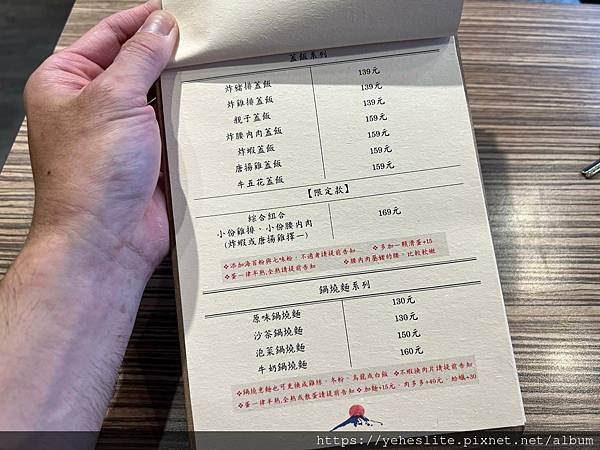 蓋飯系列
炸豬排蓋飯 139元
炸雞排蓋飯 139元
親子蓋飯 139元
炸腰內肉蓋飯 159元
炸蝦蓋飯 159元
唐揚雞蓋飯 159元
牛五花蓋飯 159元
【限定款】
綜合組合 169元
小份雞排、小份腰內肉
(炸蝦或唐揚雞擇一)
❖添加海苔粉與七味粉，不適者請提前告知 ❖多加一顆滑蛋+15
❖蛋一律半熟,全熟請提前告知 ❖腰內肉為豬的腰，比較軟嫩
鍋燒麵系列
原味鍋燒麵 130元
沙茶鍋燒麵 130元
泡菜鍋燒麵 150元
牛奶鍋燒麵 160元
❖鍋燒意麵也可更換成雞絲、冬粉、烏龍或白飯 ❖不蝦換肉片請提前告知
❖蛋一律半熟,全熟或散蛋請提前告知 ❖加麵+15元、肉多多+40元、蛤蠣+30
https://yeheslite.pixnet.net/album